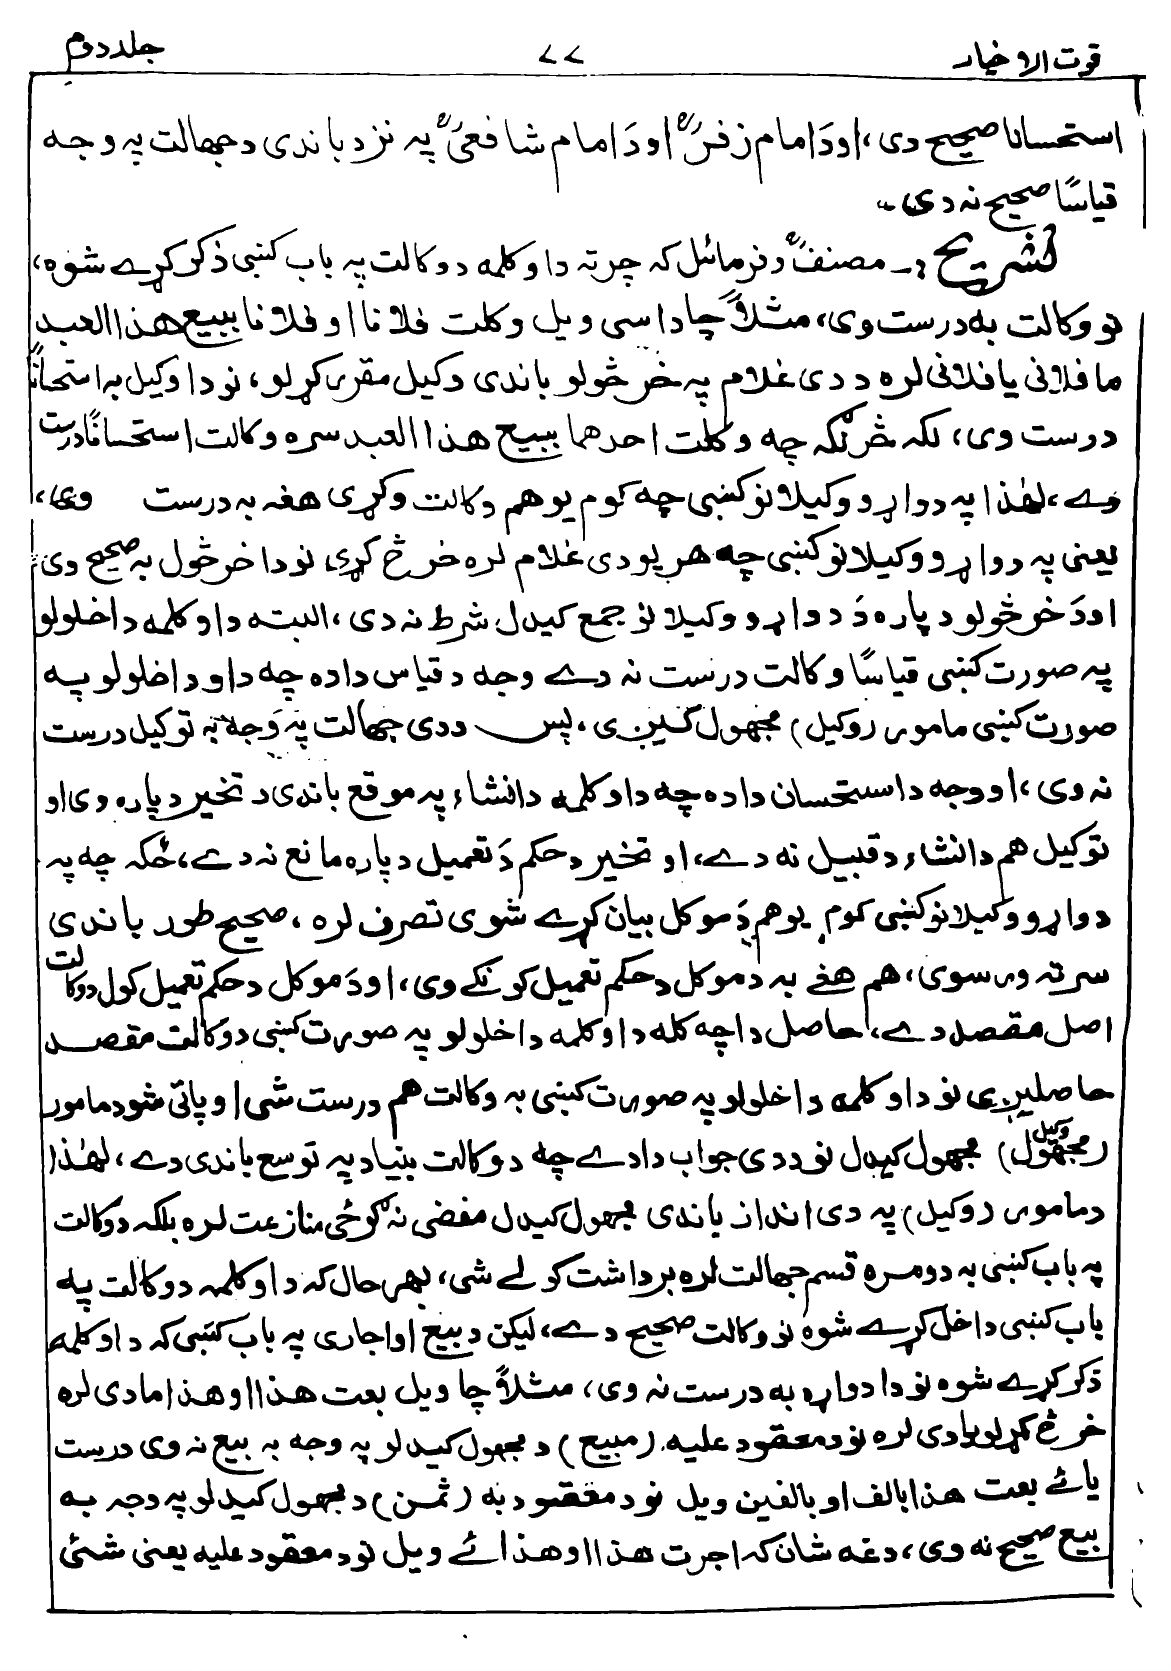 قوت الاخیار ۷۷ جلد دوم
استحسانا صحیح دی، اودَ امام زفرؒ اودَ امام شافعیؒ په نزد باندی دجهالت په وجه
قیاسًا صحیح نه دی۔
تشریح :۔ مصنفؒ وفرمائل که چرته دا و کلمه دوکالت په باب کښی ذکر کړے شوه،
نو وکالت به درست وی، مثلاً چا داسی ویل وکلت فلانا او فلانا ببیع هذا العبد
ما فلانی یا فلانی لره ددی غلام په خرڅولو باندی وکیل مقرر کړلو، نو دا وکیل به استحسانًا
درست وی، لکه څرنګه چه وکلت احدهما ببیع هذا العبد سره وکالت استحسانًا درست
دے، لهٰذا په دواړو وکیلانو کښی چه کوم یوهم وکالت وکړی هغه به درست وی،
یعنی په دواړو وکیلانو کښی چه هر یو دی غلام لره خرڅ کړی نو دا خرڅول به صحیح وی
اودَ خرڅولو دپاره دَ دواړو وکیلانو جمع کیدل شرط نه دی، البته دا و کلمه داخلولو
په صورت کښی قیاسًا وکالت درست نه دے وجه دقیاس داده چه دا و داخلولو په
صورت کښی مامور (وکیل) مجهول کیږی، پس ددی جهالت په وجه به توکیل درست
نه وی، او وجه داستحسان داده چه دا و کلمه دانشاء په موقع باندی د تخیر دپاره وی او
توکیل هم دانشاء دقبیل نه دے، او تخیر دحکم دَ تعمیل دپاره مانع نه دے، ځکه چه په
دواړو وکیلانو کښی کوم یوهم دَ موکل بیان کړے شوی تصرف لره، صحیح طور باندی
سرته ورسوی، هم هغے به دَ موکل دحکم تعمیل کونکے وی، اودَ موکل دحکم تعمیل کول دوکالت
اصل مقصد دے، حاصل داچه کله دا و کلمه داخلولو په صورت کښی دوکالت مقصد
حاصلیږی نو دا و کلمه داخلولو په صورت کښی به وکالت هم درست شی او پاتی شو دمامور
(مجهول وکیل) مجهول کیدل نو ددی جواب دادے چه دوکالت بنیاد په توسع باندی دے، لهٰذا
دمامور (وکیل) په دی انداز باندی مجهول کیدل مفضی نه ګرځی منازعت لره بلکه دوکالت
په باب کښی به دومره قسم جهالت لره برداشت کولے شی، بهر حال که دا و کلمه دوکالت په
باب کښی داخل کړے شوه نو وکالت صحیح دے، لیکن دبیع او اجاری په باب کښی که دا و کلمه
ذکر کړے شوه نو دا دواړه به درست نه وی، مثلاً چا ویل بعت هذا او هذا ما دی لره
خرڅ کړلو یا دی لره نو دمعقود علیه (مبیع) دمجهول کیدلو په وجه به بیع نه وی درست
یائے بعت هذا بالف او بالفین ویل نو دمعقود به (ثمن) دمجهول کیدلو په وجه به
بیع صحیح نه وی، دغه شان که اجرت هذا او هذا ئے ویل نو دمعقود علیه یعنی شئی